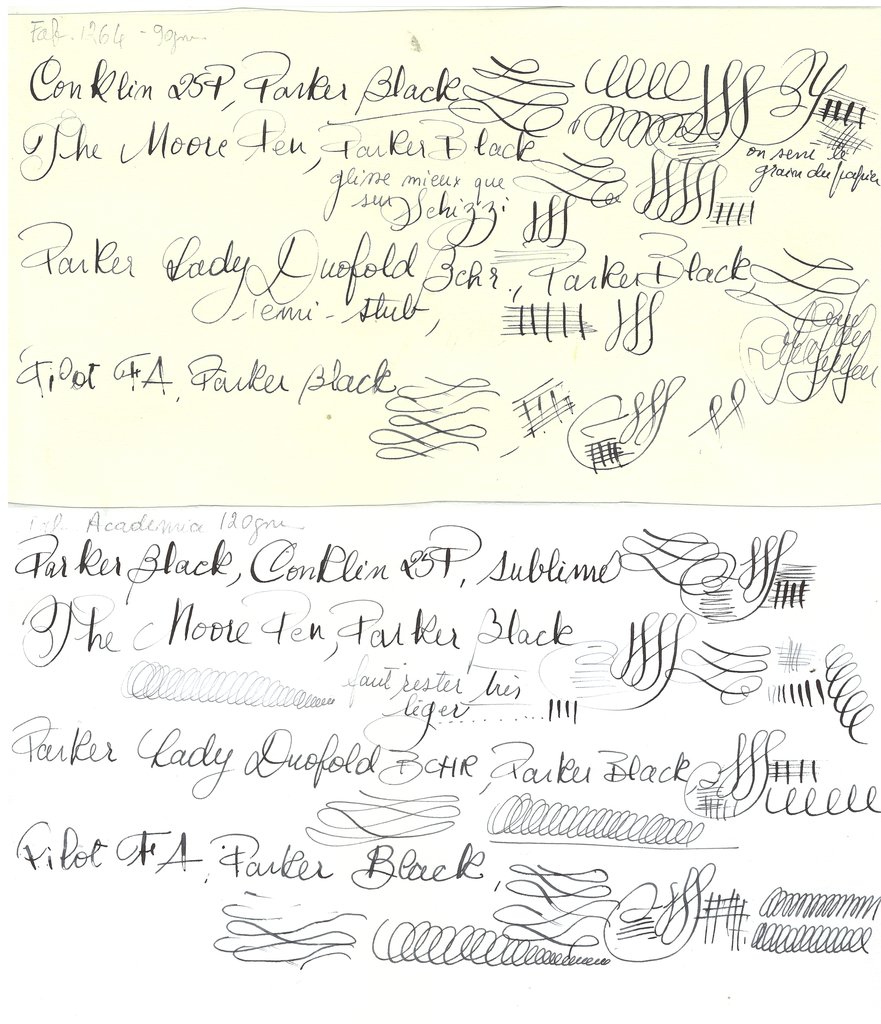 Fab. 1264 - 90gm.
Conklin 25P, Parker Black
The Moore Pen, Parker Black
on sent le
grain du papier
glisse mieux que
sur Schizzi
Parker Lady Duofold Bchr., Parker Black
semi-stub,
Pilot FA, Parker Black
Academia 120gm
Parker Black, Conklin 25P, sublime
The Moore Pen, Parker Black
faut rester très
léger
Parker Lady Duofold BCHR, Parker Black
Pilot FA, Parker Black,